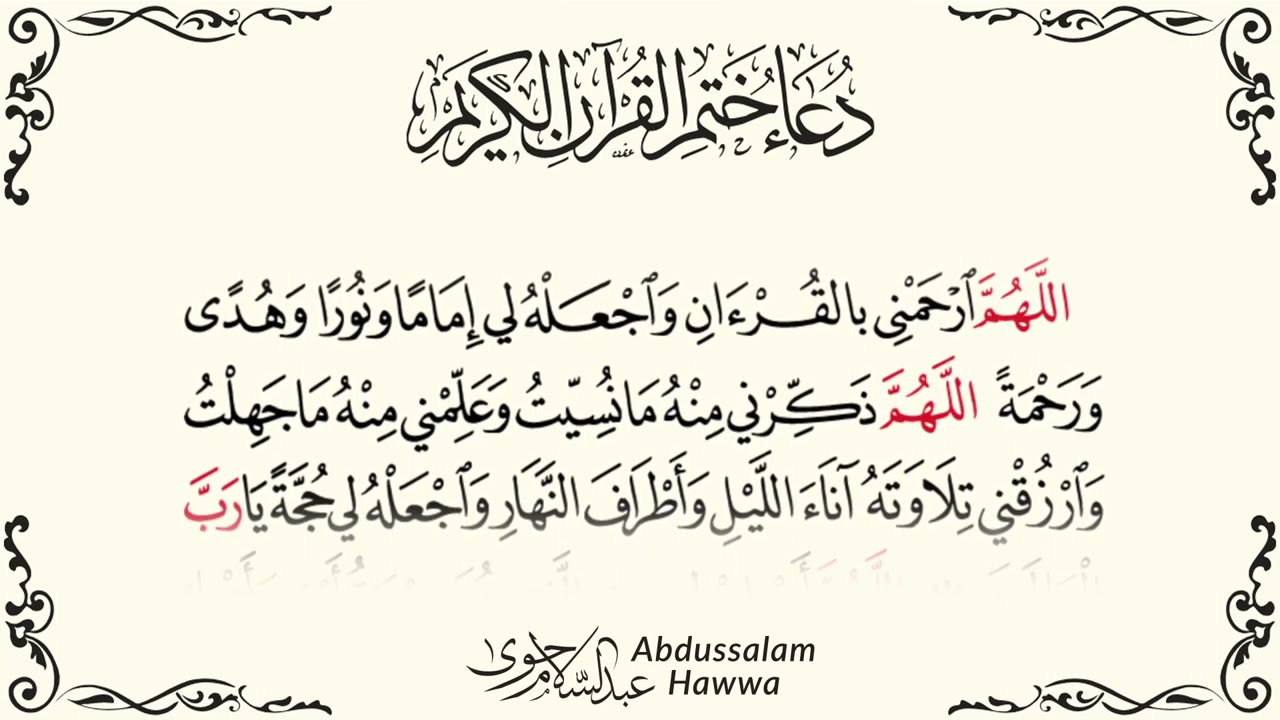 دُعَاءُ خَتْمِ القُرْآنِ الكَرِيمِ
اللَّهُمَّ ٱرْحَمْنِي بالقُرْءَانِ وَٱجْعَلْهُ لي إِمَامًا وَنُورًا وَهُدًى
وَرَحْمَةً اللَّهُمَّ ذَكِّرْني مِنْهُ مَا نُسِّيتُ وَعَلِّمْني مِنْهُ مَا جَهِلْتُ
وَٱرْزُقْني تِلَاوَتَهُ آنَاءَ اللَّيْلِ وَأَطْرَافَ النَّهَارِ وَٱجْعَلْهُ لي حُجَّةً يَا رَبَّ
عبدالسلام حوى
Abdussalam
Hawwa